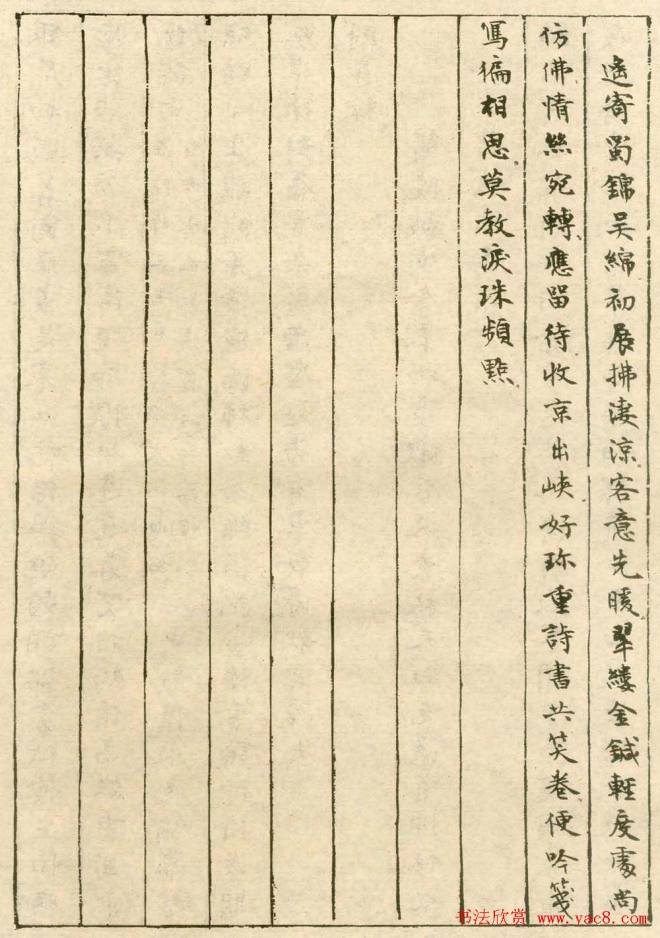 遙寄蜀錦吳綿初展拂淒涼客意先暖翠縷金鍼輕度處尚
仿佛情絲宛轉應留待收京出峽好珎重詩書共笑卷便吟箋
寫徧相思莫教淚珠頻㸃
书法欣赏 www.yac8.com